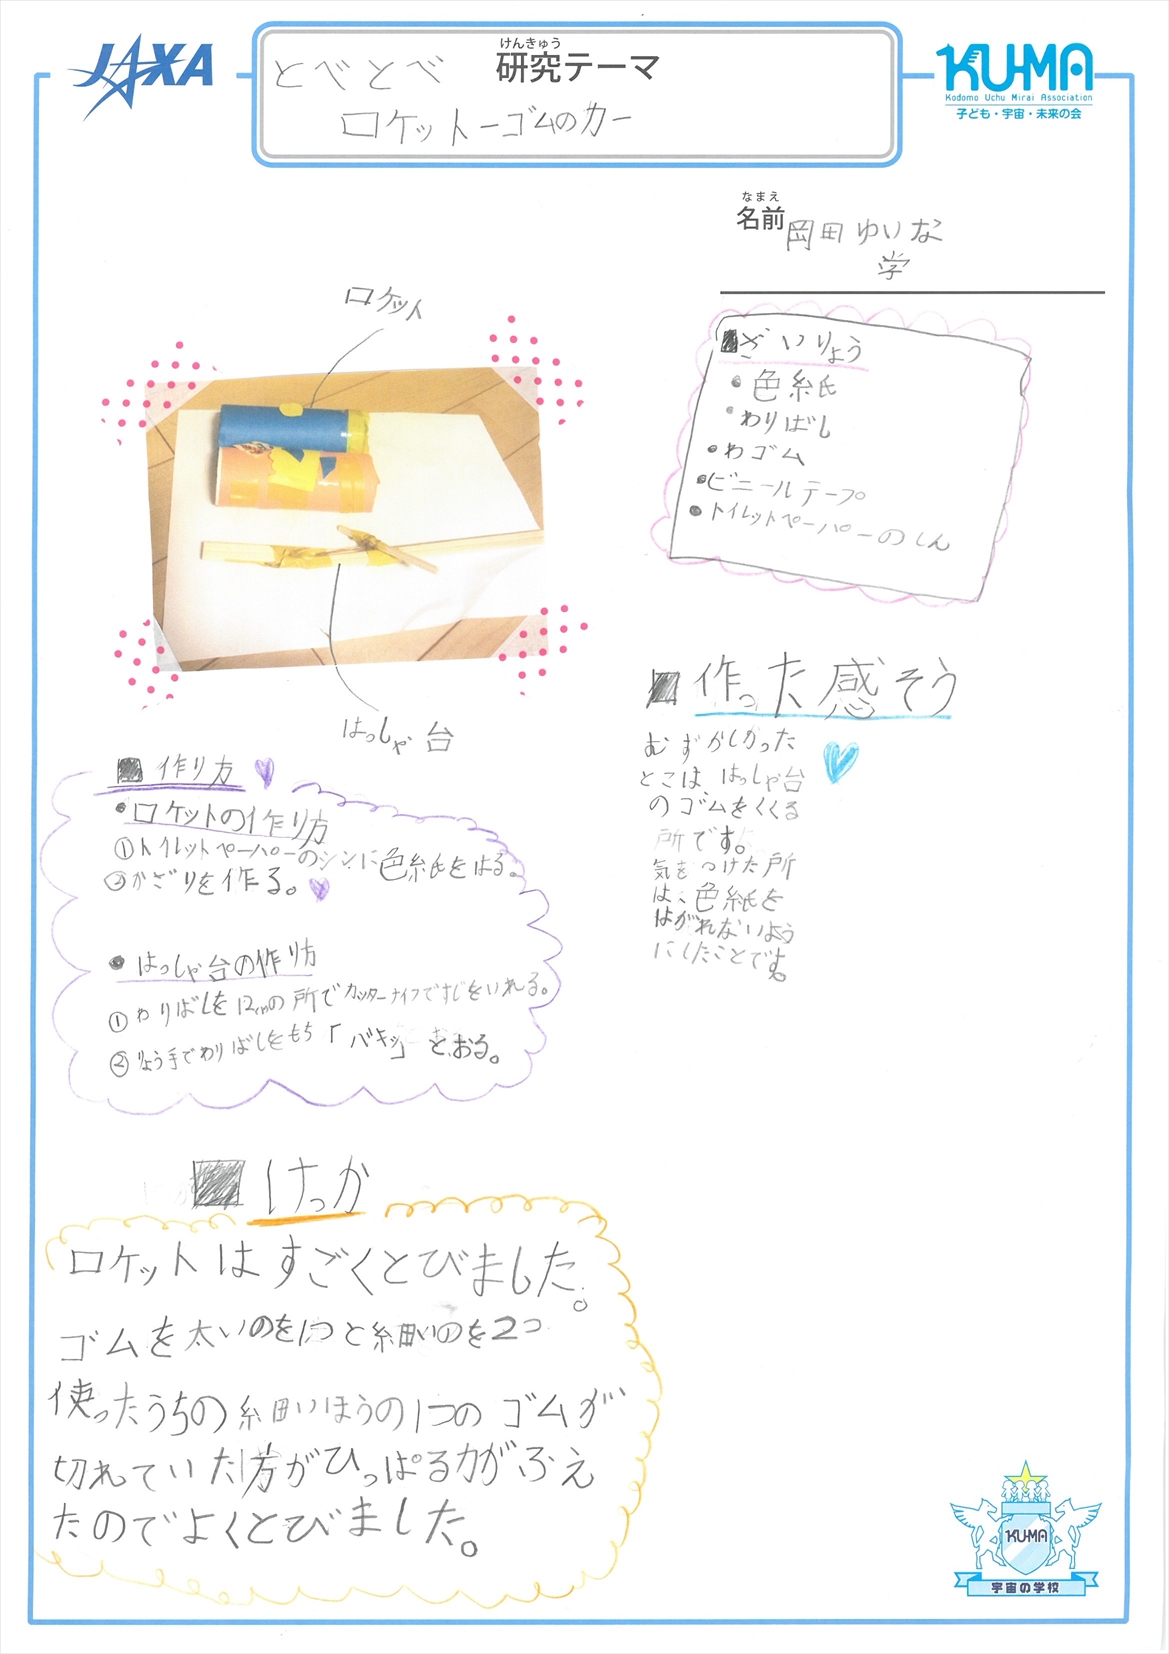 JAXA
けんきゅう
研究テーマ
とべとべ
ロケットーゴムのカー
KU-MA
Kodomo Uchu Mirai Association
子ども・宇宙・未来の会
なまえ
名前
岡田ゆいな
学
ロケット
はっしゃ台
■ざいりょう
・色紙
・わりばし
・わゴム
・ビニールテープ
・トイレットペーパーのしん
■作り方
・ロケットの作り方
①トイレットペーパーのシンに色紙をはる。
②かざりを作る。
・はっしゃ台の作り方
①わりばしを12cmの所でカッターナイフですじをいれる。
②りょう手でわりばしをもち「バキッ」とおる。
■作った感そう
むずかしかった
とこは、はっしゃ台
のゴムをくくる
所です。
気をつけた所
は、色紙を
はがれないよう
にしたことです。
■けっか
ロケットはすごくとびました。
ゴムを太いのを1つと細いのを2つ
使ったうちの細いほうの1つのゴムが
切れていた方がひっぱる力がふえ
たのでよくとびました。
KU-MA
宇宙の学校